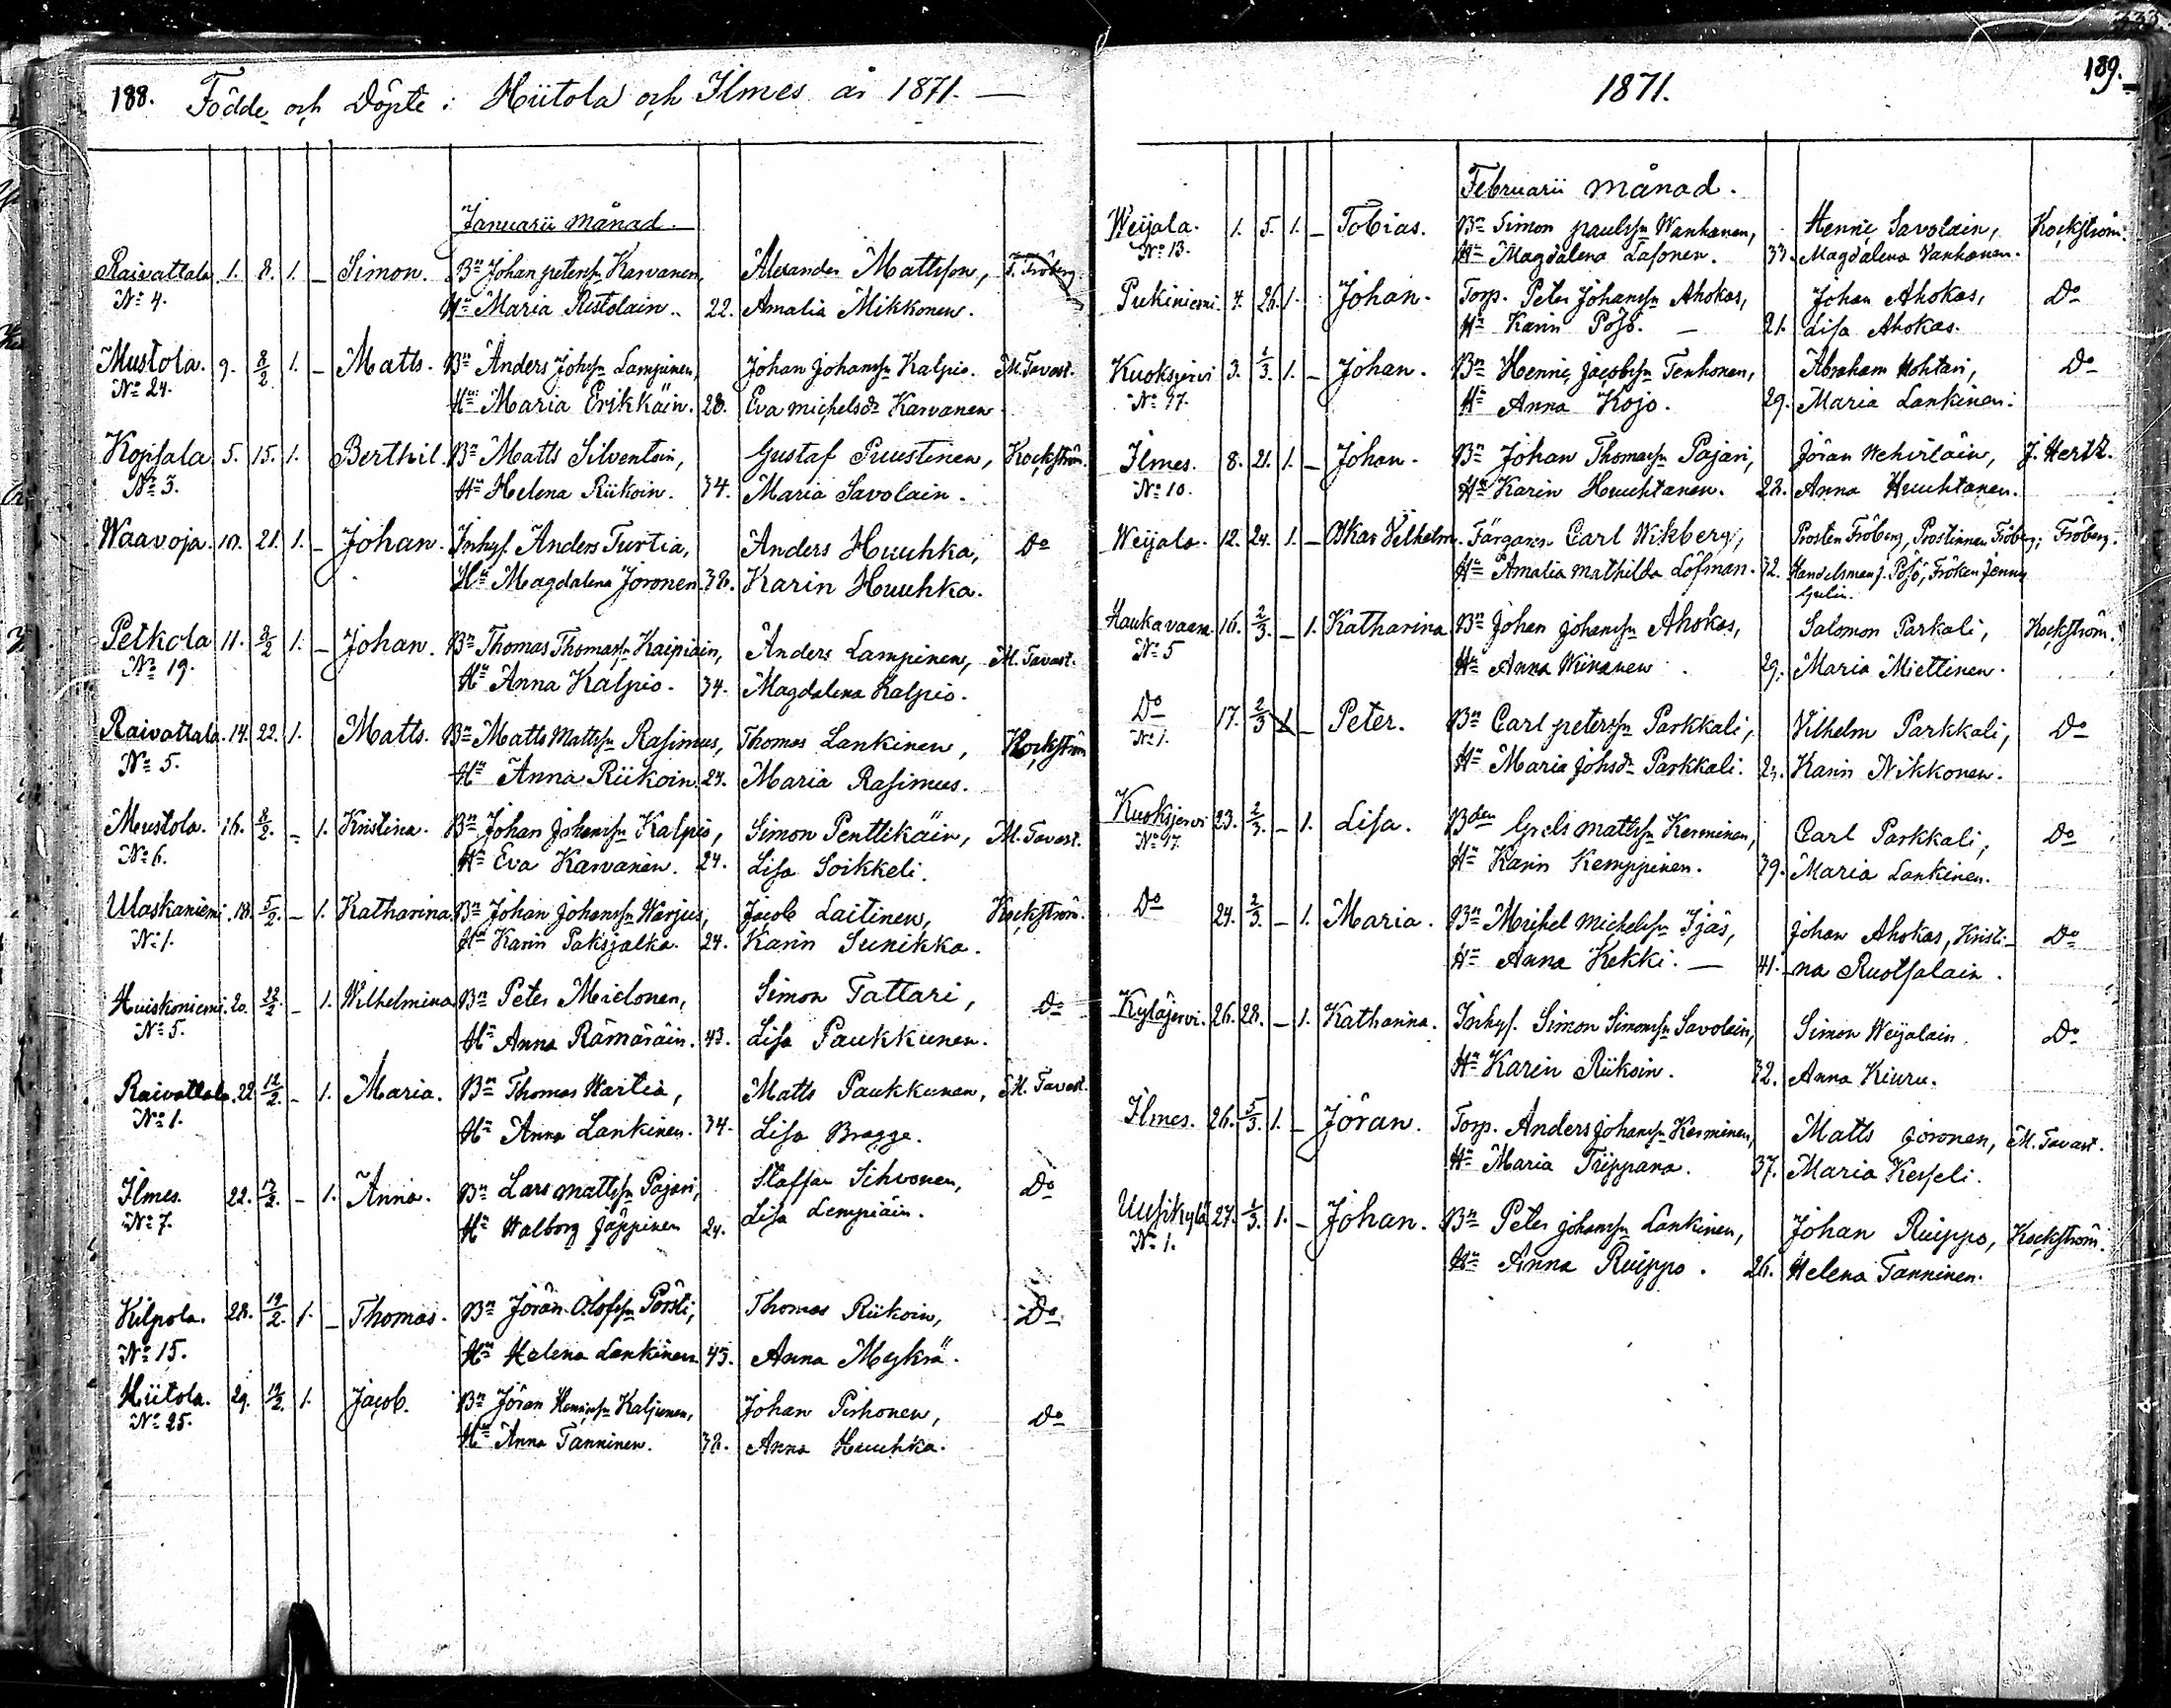 188. Födde och Döpte i Hiitola och Ilmes år 1871. —
Januarii månad.
Raivattala 1. 8. 1. – Simon. Bn Johan peterssn Karvanen, Alexander Mattsson, F. Fröberg.
No 4. Hu Maria Ristolain. 22. Amalia Mikkonen.
Mustola. 9. 8/2 1. – Matts. Bn Anders Johssn Lampinen, Johan Johanssn Kalpio. M. Tavast.
No 24. Hu Maria Erikkäin. 28. Eva michelsdr Karvanen
Kopsala 5. 15. 1. Berthil. Bn Matts Silventoin, Gustaf Puustinen, Kockström.
No 3. Hu Helena Riikoin. 34. Maria Savolain.
Waavoja. 10. 21. 1. – Johan. Inhys. Anders Turtia, Anders Huuhka, Do
Hu Magdalena Joronen 38. Karin Huuhka.
Petkola 11. 8/2 1. – Johan. Bn Thomas Thomassn Kaipiain, Anders Lampinen, M. Tavast.
No 19. Hu Anna Kalpio. 34. Magdalena Kalpio.
Raivattala. 14. 22. 1. Matts. Bn Matts Mattssn Rasimus, Thomas Lankinen, Kockström
No 5. Hu Anna Riikoin. 24. Maria Rasimus.
Mustola. 16. 8/2. – 1. Kristina. Bn Johan Johanssn Kalpio, Simon Penttikäin, M. Tavast.
No 6. Hu Eva Karvanen. 24. Lisa Soikkeli.
Ulaskaniemi. 18. 5/2 – 1. Katharina Bn Johan Johanssn Harjus, Jacob Laitinen, Kockström.
No 1. Hu Karin Paksjalka. 24. Karin Sunikka.
Huiskoniemi. 20. 22/2 – 1. Wilhelmina Bn Peter Mielonen, Simon Tattari, Do
No 5. Hu Anna Rämäräin. 43. Lisa Paukkunen.
Raivattala. 22. 12/2. – 1. Maria. Bn Thomas Hartia, Matts Paukkunen, M. Tavast.
No 1. Hu Anna Lankinen. 34. Lisa Bragge.
Ilmes. 22. 12/2. – 1. Anna. Bn Lars mattssn Pajari, Staffan Sihvonen, Do
No 7. Hu Walborg Jäppinen 24. Lisa Lempiäin.
Kilpola. 28. 19/2. 1. – Thomas. Bn Jöran Olofssn Porsti, Thomas Riikoin, Do
No 15. Hu Helena Lankinen 45. Anna Mykrä.
Hiitola. 29. 19/2. 1. Jacob. Bn Jöran Henricssn Kaljunen, Johan Pirhonen, Do
No 25. Hu Anna Tanninen. 38. Anna Huuhka.
1871. 189.
Februarii månad.
Weijala. 1. 5. 1. – Tobias. Bn Simon paulssn Wanhanen, Henric Savolain, Kockström.
No 13. Hu Magdalena Lasonen. 33. Magdalena Vanhanen.
Pukiniemi. 4. 26. 1. Johan. Torp. Peter Johanssn Ahokas, Johan Ahokas, Do
Hu Karin Pösö. — 21. Lisa Ahokas.
Kuoksjervi 3. 1/3. 1. – Johan. Bn Henric Jacobssn Tenhonen, Abraham Hohtari, Do
No 97. Hu Anna Kojo. 29. Maria Lankinen.
Ilmes. 8. 21. 1. – Johan. Bn Johan Thomassn Pajari, Jöran Wehviläin, J. Hertz.
No 10. Hu Karin Huuhtanen. 28. Anna Huuhtanen.
Weijala. 12. 24. 1. – Oskar Vilhelm. Färgaren Carl Wikberg, Prosten Fröberg, Prostinnan Fröberg; Fröberg.
Hu Amalia Mathilda Löfman. 32. Handelsman J. Pösö, Fröken Jenny
Haukavaara. 16. 2/3. – 1. Katharina Bn Johan Johanssn Ahokas, Salomon Parkali, Kockström.
No 5 Hu Anna Wiinanen. 29. Maria Miettinen.
Do 17. 2/3 1 – Peter. Bn Carl peterssn Parkkali, Vilhelm Parkkali, Do
No 1. Hu Maria Johsdr Parkkali. Karin Nikkonen.
Kuoksjervi 23. 2/3. – 1. Lisa. Bden Grels mattssn Kerminen, Carl Parkkali, Do
No 97. Hu Karin Kemppinen. 39. Maria Lankinen.
Do 24. 2/3. – 1. Maria. Bn Michel Michelssn Ijäs, Johan Ahokas, Kristi- Do
Hu Anna Kekki. — 41. na Ruotsalain.
Kyläjervi. 26. 28. – 1. Katharina. Inhys. Simon Simonssn Savolain, Simon Weijalain. Do
Hu Karin Riikoin. 32. Anna Kiuru.
Ilmes. 26. 5/3. 1. – Jöran. Torp. Anders Johanssn Kerminen, Matts Joronen, M. Tavast.
Hu Maria Trippana. 37. Maria Kesseli.
Uusikylä 27. 1/3. 1. – Johan. Bn Peter Johanssn Lankinen, Johan Ruippo, Kockström.
No 1. Hu Anna Ruippo. 26. Helena Tanninen.